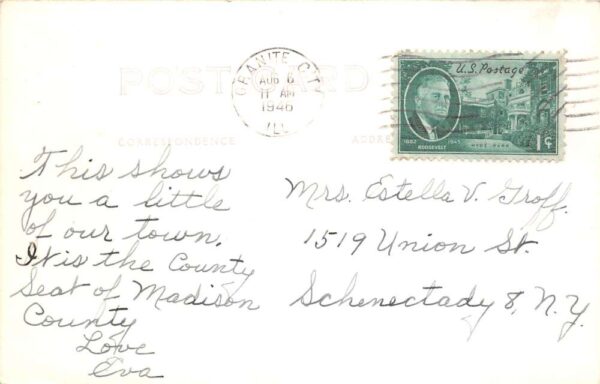 POST CARD
GRANITE CITY
AUG 6
11 AM
1946
ILL
U.S. Postage
1882 1945
ROOSEVELT
HYDE PARK
1¢
CORRESPONDENCE
ADDRE
This shows
you a little
of our town.
It is the County
Seat of Madison
County
Love
Eva
Mrs. Estella V. Groff.
1519 Union St.
Schenectady 8, N.Y.